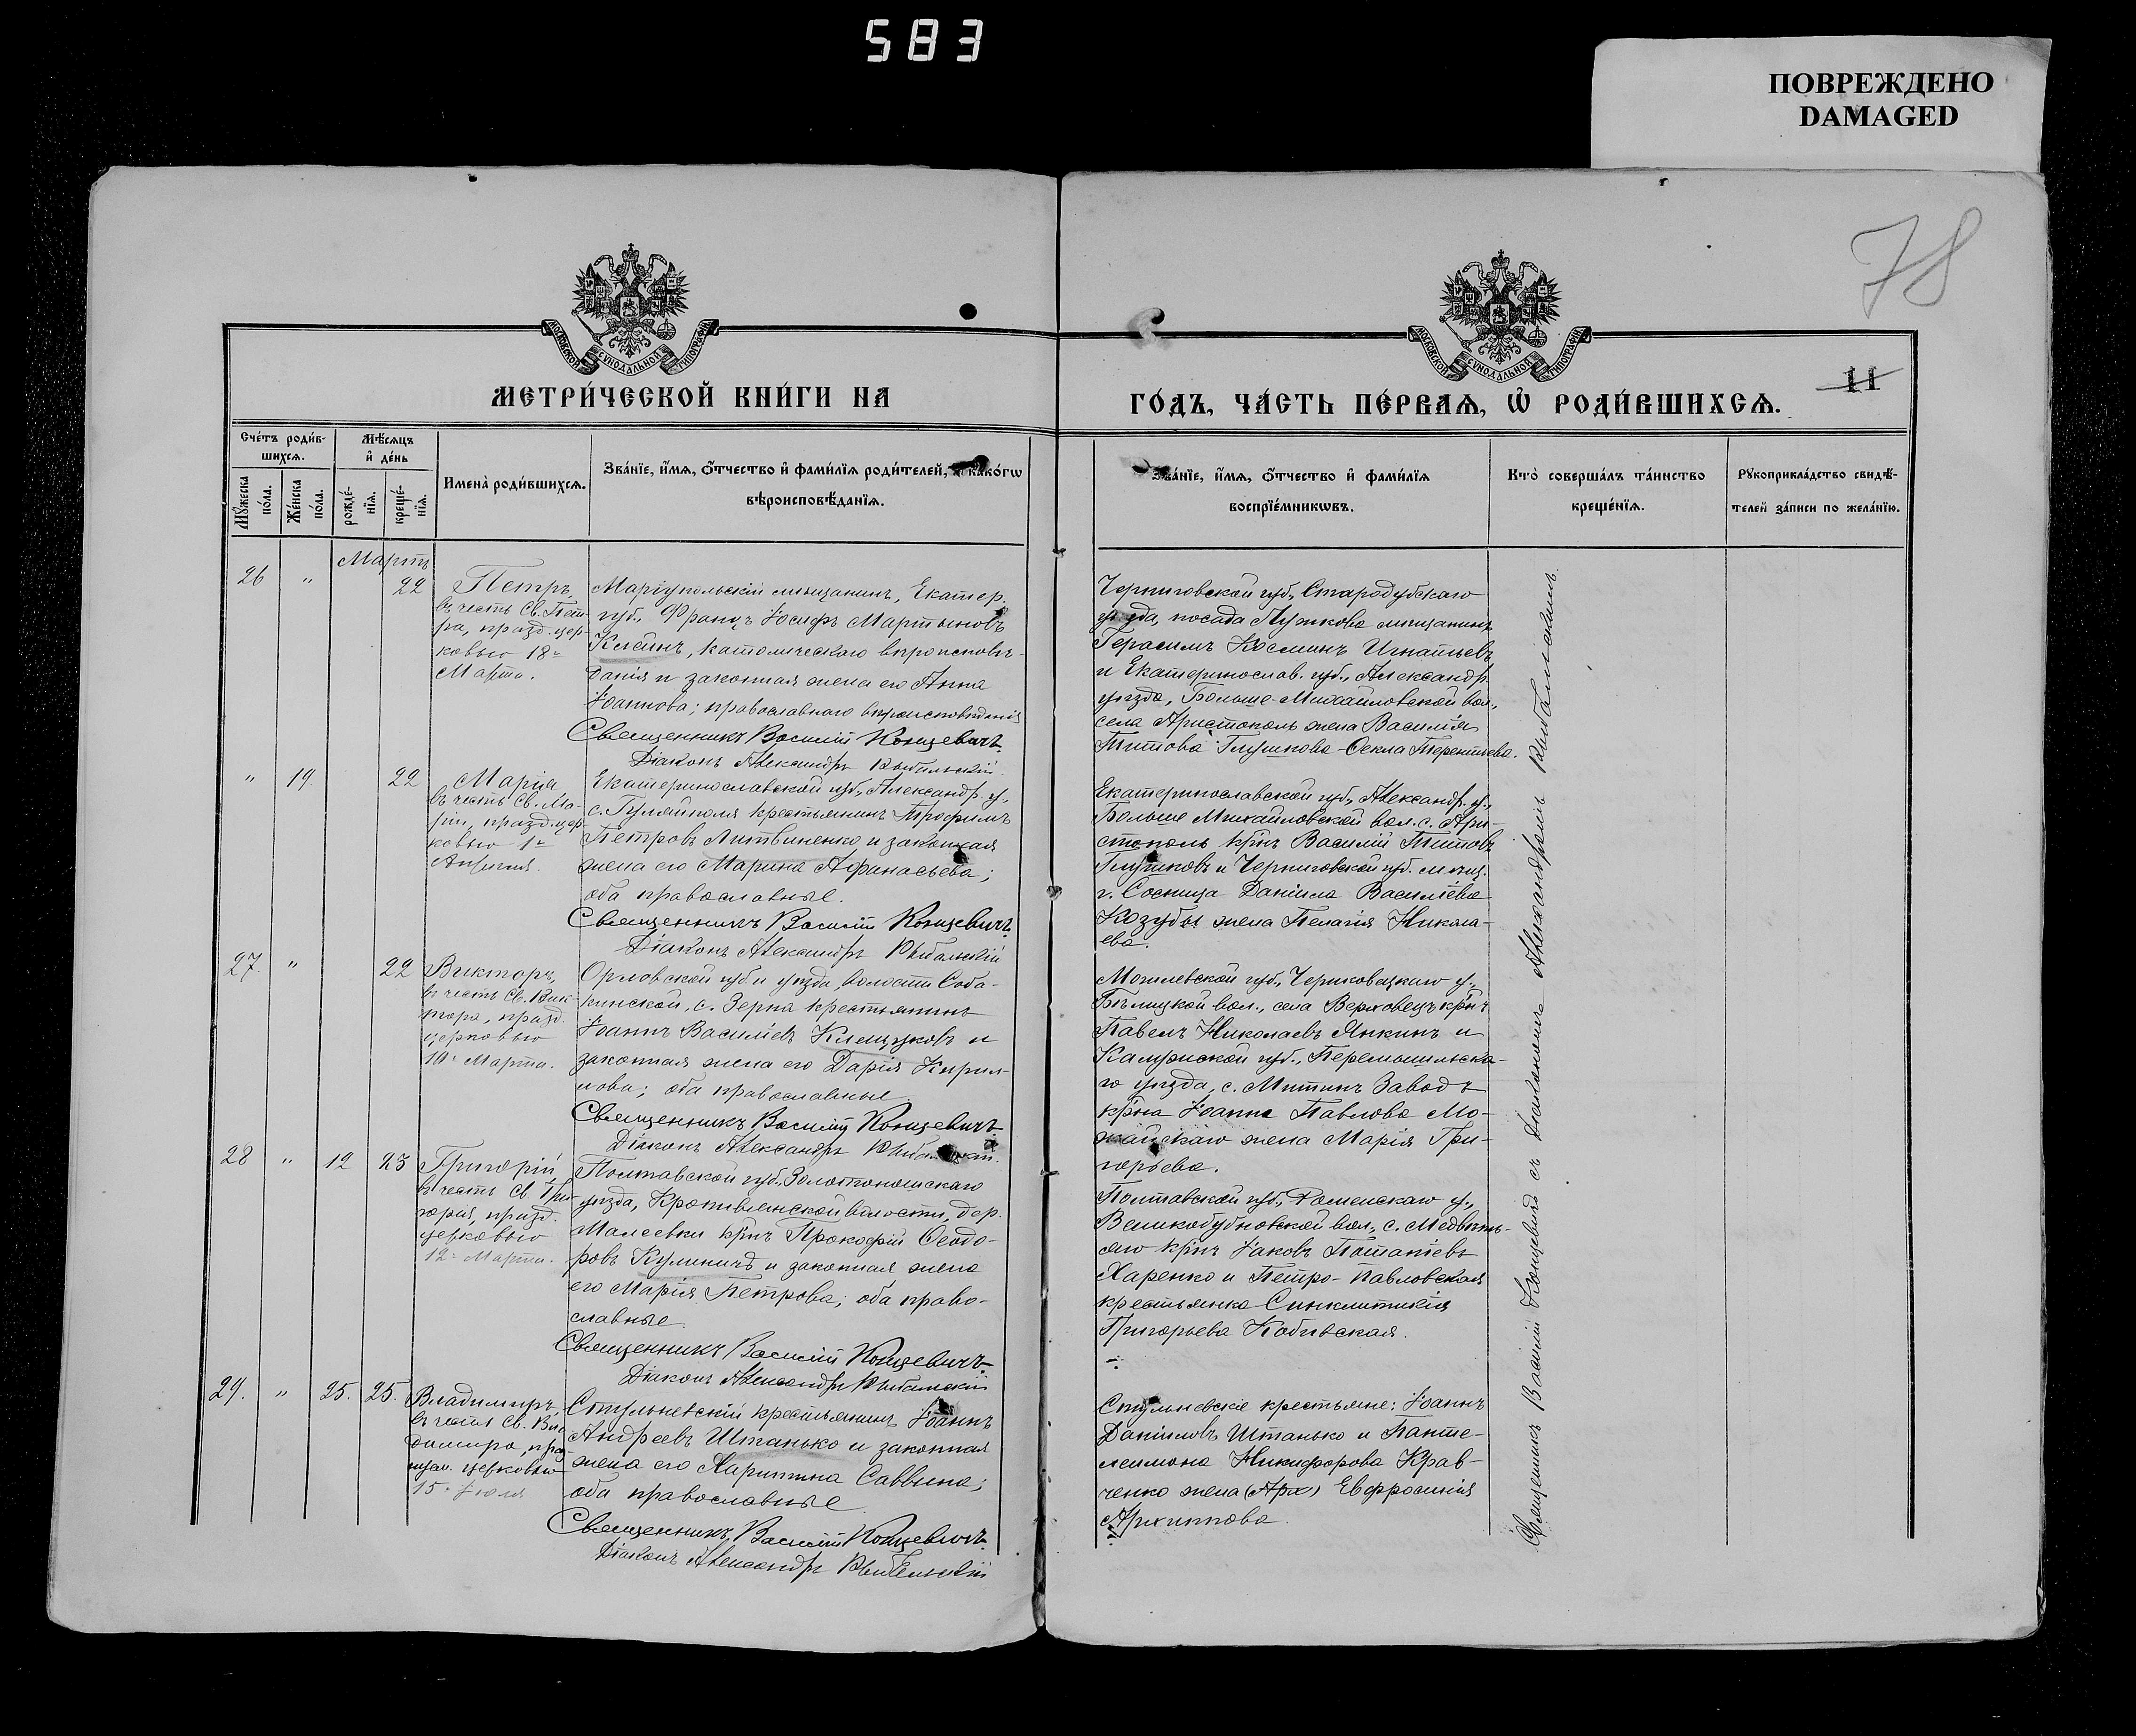 583
ПОВРЕЖДЕНО
DAMAGED
78
МОСКОВСКОЙ СѴНОДАЛЬНОЙ ТИПОГРАФІИ
МОСКОВСКОЙ СѴНОДАЛЬНОЙ ТИПОГРАФІИ
МЕТРИ́ЧЕСКОЙ КНИ́ГИ НА
ГО́ДЪ, ЧА́СТЬ ПЕ́РВАѦ, Ѽ РОДИ́ВШИХСѦ.
11
Счéтъ роди́в-
шихсѧ.
Мѣ́сѧцъ
и҆ де́нь
Мꙋ́жеска
по́ла.
Же́нска
по́ла.
рождé-
нїѧ.
крещé-
нїѧ.
Именà роди́вшихсѧ.
Зва́нїе, и҆́мѧ, ѻ҆́тчество и҆ фами́лїѧ роди́телей, како́гѡ
вѣроисповѣ́данїѧ.
Зва́нїе, и҆́мѧ, ѻ҆́тчество и҆ фами́лїѧ
воспрїе́мникѡвъ.
Кто̀ соверша́лъ та́инство
креще́нїѧ.
Рꙋкоприкла́дство свидѣ́-
телей за́писи по жела́нїю.
Мартъ
26 " 22
Петръ,
въ честь Св. Пет-
ра, празд. цер-
ковью 18го
Марта.
Маріупольскій мѣщанинъ, Екатер.
губ., Францъ Іосифъ Мартыновъ
Клейнъ, католическаго вѣроисповѣ-
данія и законная жена его Анна
Іоаннова; православнаго вѣроисповѣданія
Священникъ Василій Концевичъ.
Діаконъ Александръ Рыбальскій.
Черниговской губ., Стародубскаго
уѣзда, посада Лужкова мѣщанинъ
Герасимъ Косминъ Игнатьевъ
и Екатеринослав. губ., Александр.
уѣзда, Больше-Михайловской вол.,
села Аристополь жена Василія
Титова Глушкова-Ѳекла Терентьева.
" 19. 22
Марія
въ честь Св. Ма-
ріи, празд. цер-
ковью 1го
Апрѣля.
Екатеринославской губ., Александр. у.,
с. Гуляйполя крестьянинъ Трофимъ
Петровъ Литвиненко и законная
жена его Марина Афанасьева;
оба православные.
Священникъ Василій Концевичъ.
Діаконъ Александръ Рыбальскій
Екатеринославской губ., Александр. у.,
Больше Михайловской вол. с. Ари-
стополь кр-нъ Василій Титовъ
Глушковъ и Черниговской губ. мѣщ.
г. Сосница Даніила Васильева
Козубы жена Пелагія Никола-
ева.
27. " 22
Викторъ,
въ честь Св. Вик-
тора, празд.
церковью
10го Марта.
Орловской губ. и уѣзда, волости Соба-
кинской, с. Зерна крестьянинъ
Іоаннъ Васильевъ Клещуковъ и
законная жена его Дарія Кирил-
лова; оба православные
Священникъ Василій Концевичъ
Діаконъ Александръ
Могилевской губ., Чериковецкаго у.,
Бѣлицкой вол., села Верховецъ кр-нъ
Павелъ Николаевъ Янкинъ и
Калужской губ., Перемышльска-
го уѣзда, с. Митинъ Заводъ
кр-на Іоанна Павлова Мо-
жайскаго жена Марія Гри-
горьева.
28 " 12 23
Григорій,
въ честь Св. Гри-
горія, празд.
церковью
12го Марта.
Полтавской губ., Золотоношскаго
уѣзда, Кропивянской волости, дер.
Малеевки кр-нъ Прокофій Ѳеодо-
ровъ Куликичъ и законная жена
его Марія Петрова; оба право-
славные.
Священникъ Василій Концевичъ.
Діаконъ Александръ Рыбальскій
Полтавской губ., Роменскаго у.,
Великобубновской вол., с. Медвѣжь-
яго кр-нъ Іаковъ Потапіевъ
Харенко и Петро-Павловская
крестьянка-Синклитикія
Григорьева Кобивская.
29. " 25. 25.
Владимиръ,
въ честь Св. Вла-
димира, праз-
нуем. церковью
15го Іюля
Стульневскій крестьянинъ Іоаннъ
Андреевъ Штанько и законная
жена его Харитина Саввина;
оба православные
Священникъ Василій Концевичъ.
Діаконъ Александръ Рыбальскій
Стульневскіе крестьяне: Іоаннъ
Даніиловъ Штанько и Панте-
леимона Никифорова Крав-
ченко жена (Арх) Евфросинія
Архиппова.
Священникъ Василій Концевичъ съ Діакономъ Александромъ Рыбальскимъ.